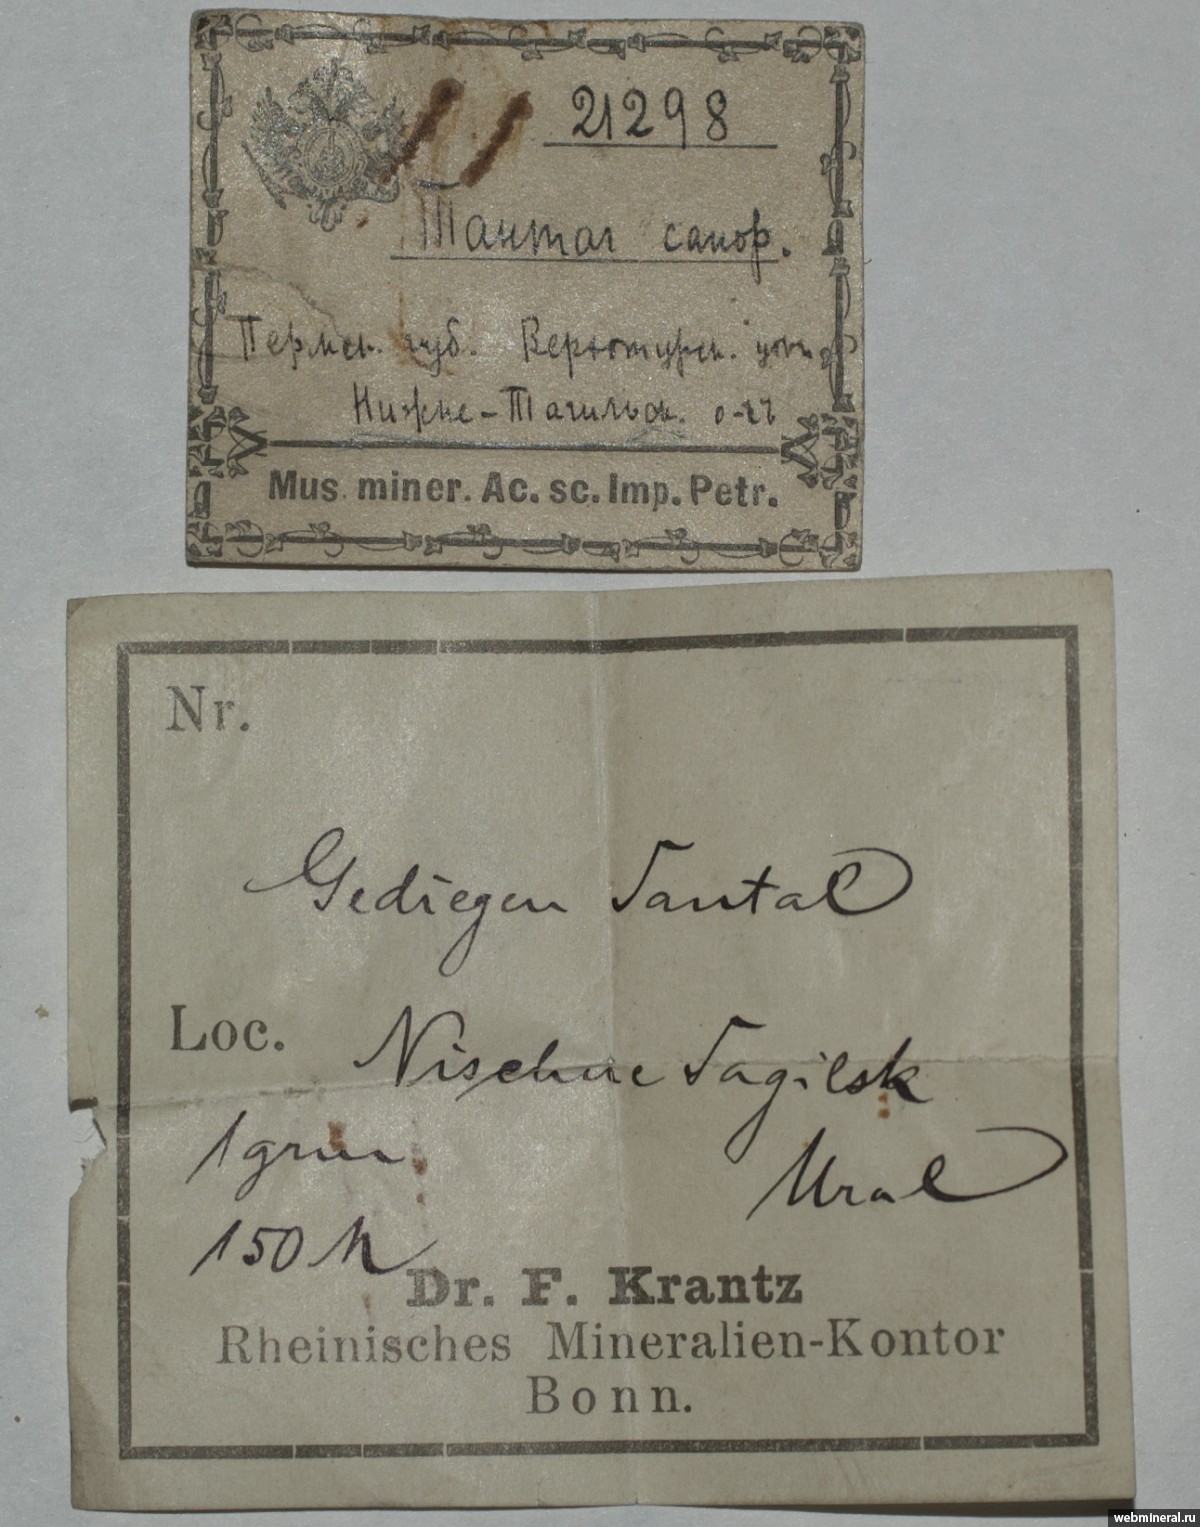 21298
Тантал самор.
Пермск. губ. Верхотурск.
Нижне-Тагильск.
Mus. miner. Ac. sc. Imp. Petr.
Nr.
Gediegen Tantal
Loc. Nischne Tagilsk
1 grm
Ural
150 M
Dr. F. Krantz
Rheinisches Mineralien-Kontor
Bonn.
webmineral.ru